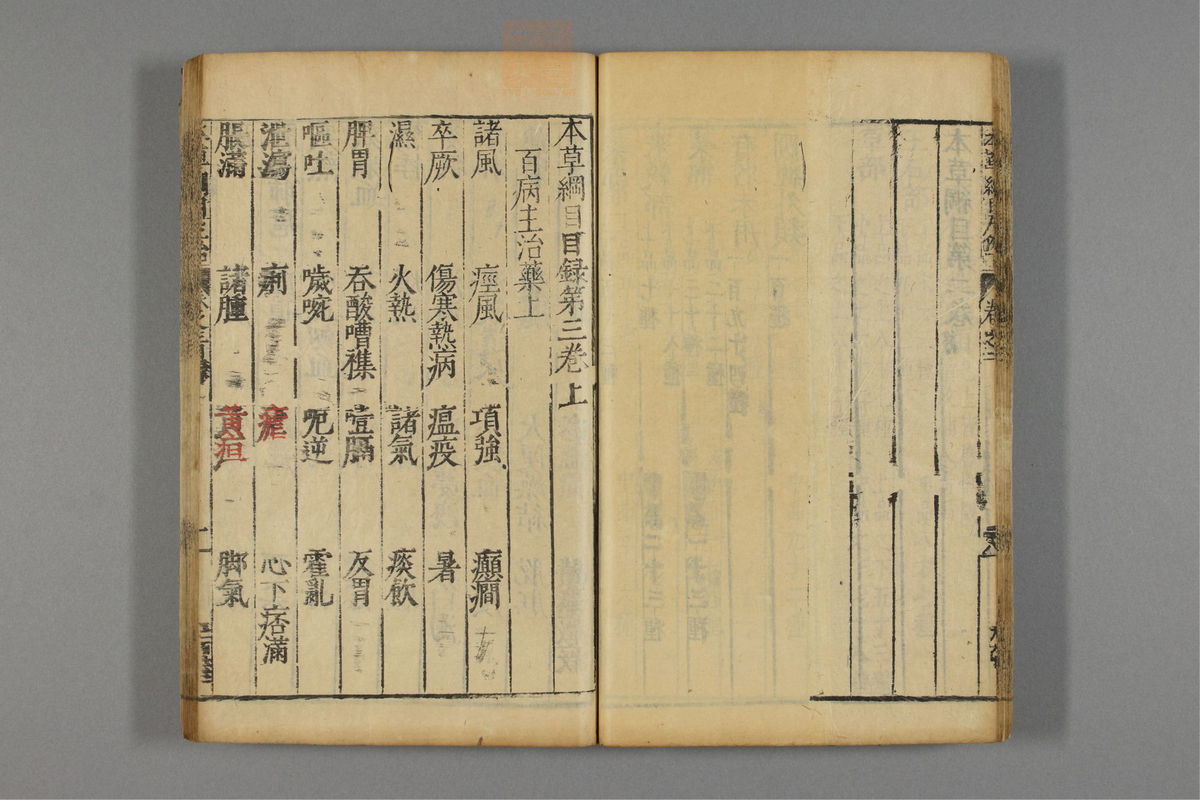 本草綱目目録第三卷上
百病主治藥上
諸風 痙風 項強 癲癇
卒厥 傷寒熱病 瘟疫 暑
濕 火熱 諸氣 痰飲
脾胃 吞酸嘈襍 噎膈 反胃
嘔吐 噦啘 呃逆 霍亂
泄瀉 痢 瘧 心下痞滿
脹滿 諸腫 黄疸 脚氣